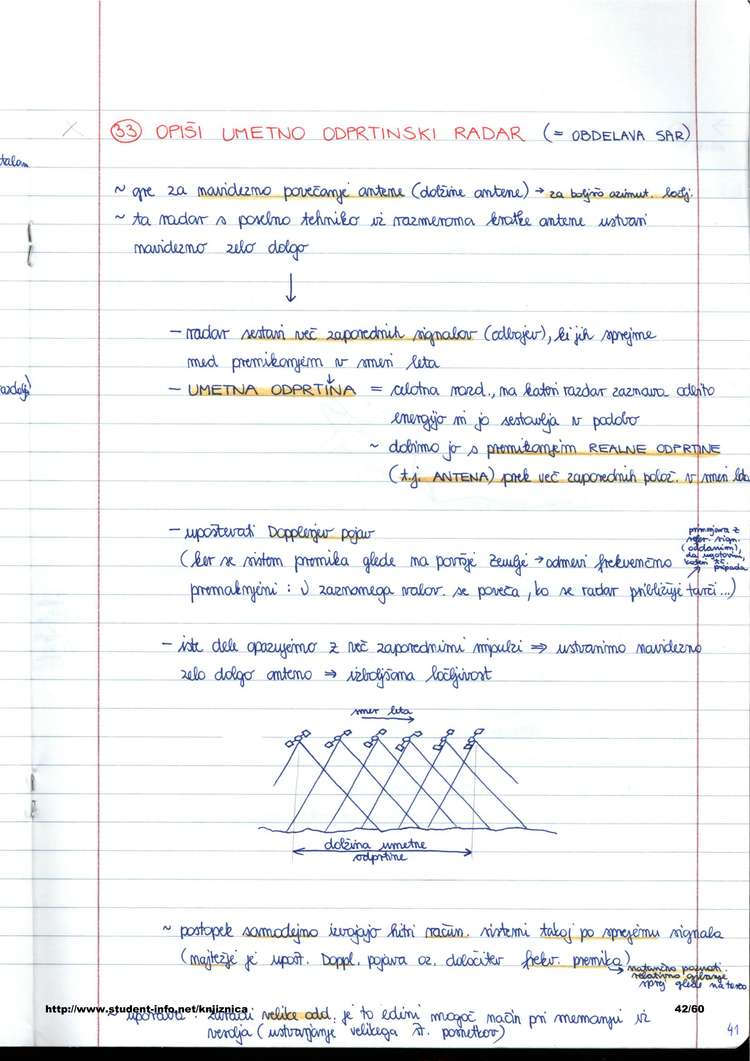 33 OPIŠI UMETNO ODPRTINSKI RADAR (= OBDELAVA SAR)
talom
~ gre za navidezno povečanje antene (dolžine antene) → za boljšo azimut. ločlj.
~ ta radar s posebno tehniko iz razmeroma kratke antene ustvari
navidezno zelo dolgo
↓
– radar sestavi več zaporednih signalov (odbojev), ki jih sprejme
med premikanjem v smeri leta
– UMETNA ODPRTINA = celotna razd., na kateri razdar zaznava odbito
energijo in jo sestavlja v podobo
~ dobimo jo s premikanjem REALNE ODPRTINE
(t.j. ANTENA) prek več zaporednih polož. v smeri leta
– upoštevati Dopplerjev pojav
primerjava z
refer. sign.
(oddanim),
da ugotovimo,
pripada
(ker se sistem premika glede na površje Zemlje → odmevi frekvenčno
premaknjeni : ν zaznanega valov. se poveča, ko se radar približuje tarči ...)
– iste dele opazujemo z več zaporednimi impulzi ⇒ ustvarimo navidezno
zelo dolgo anteno ⇒ izboljšana ločljivost
smer leta
dolžina umetne
odprtine
~ postopek samodejno izvajajo hitri račun. sistemi takoj po sprejemu signala
(najtežje je upošt. Doppl. pojava oz. določitev frekv. premika)
→ natančno poznati
relativno gibanje
sprej glede na
http://www.student-info.net/knjiznica
42/60
~ uporaba : zaradi velike odd. je to edini mogoč način pri snemanju iz
vesolja (ustvarjanje velikega št. posnetkov)
41